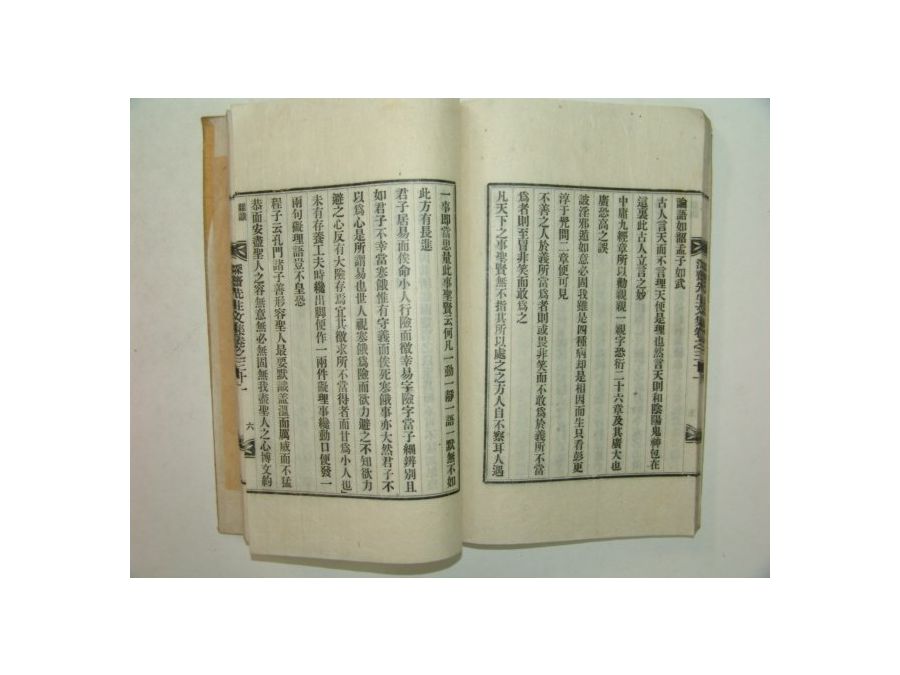 論語如韶孟子如武
古人言天而不言理天便是理也然言天則和陰陽鬼神包在
這裏此古人立言之妙
中庸九經章所以勸親親一親字恐衍二十六章及其廣大也
廣恐高之誤
詖淫邪遁如意必固我雖是四種病却是相因而生只看彭更
淳于髡問二章便可見
不善之人於義所當爲者則或畏非笑而不敢爲於義所不當
爲者則至冒非笑而敢爲之
凡天下之事聖賢無不指其所以處之之方人自不察耳人遇
一事即當思量此事聖賢云何凡一動一靜一語一默無不如
此方有長進
君子居易而俟命小人行險而徼幸易字險字當子細辨別且
如君子不幸當寒餓惟有守義而俟死寒餓事亦大然君子不
以爲心是所謂易也世人視寒餓爲險而欲力避之不知欲力
避之心反有大險存焉宜其徼求所不當得者而甘爲小人也
未有存養工夫時纔出脚便作一兩件礙理事纔動口便發一
兩句礙理語豈不皇恐
程子云孔門諸子善形容聖人最要默識盖溫而厲威而不猛
恭而安盡聖人之容無意無必無固無我盡聖人之心博文約
雜識
深齋先生文集卷之三十一
六